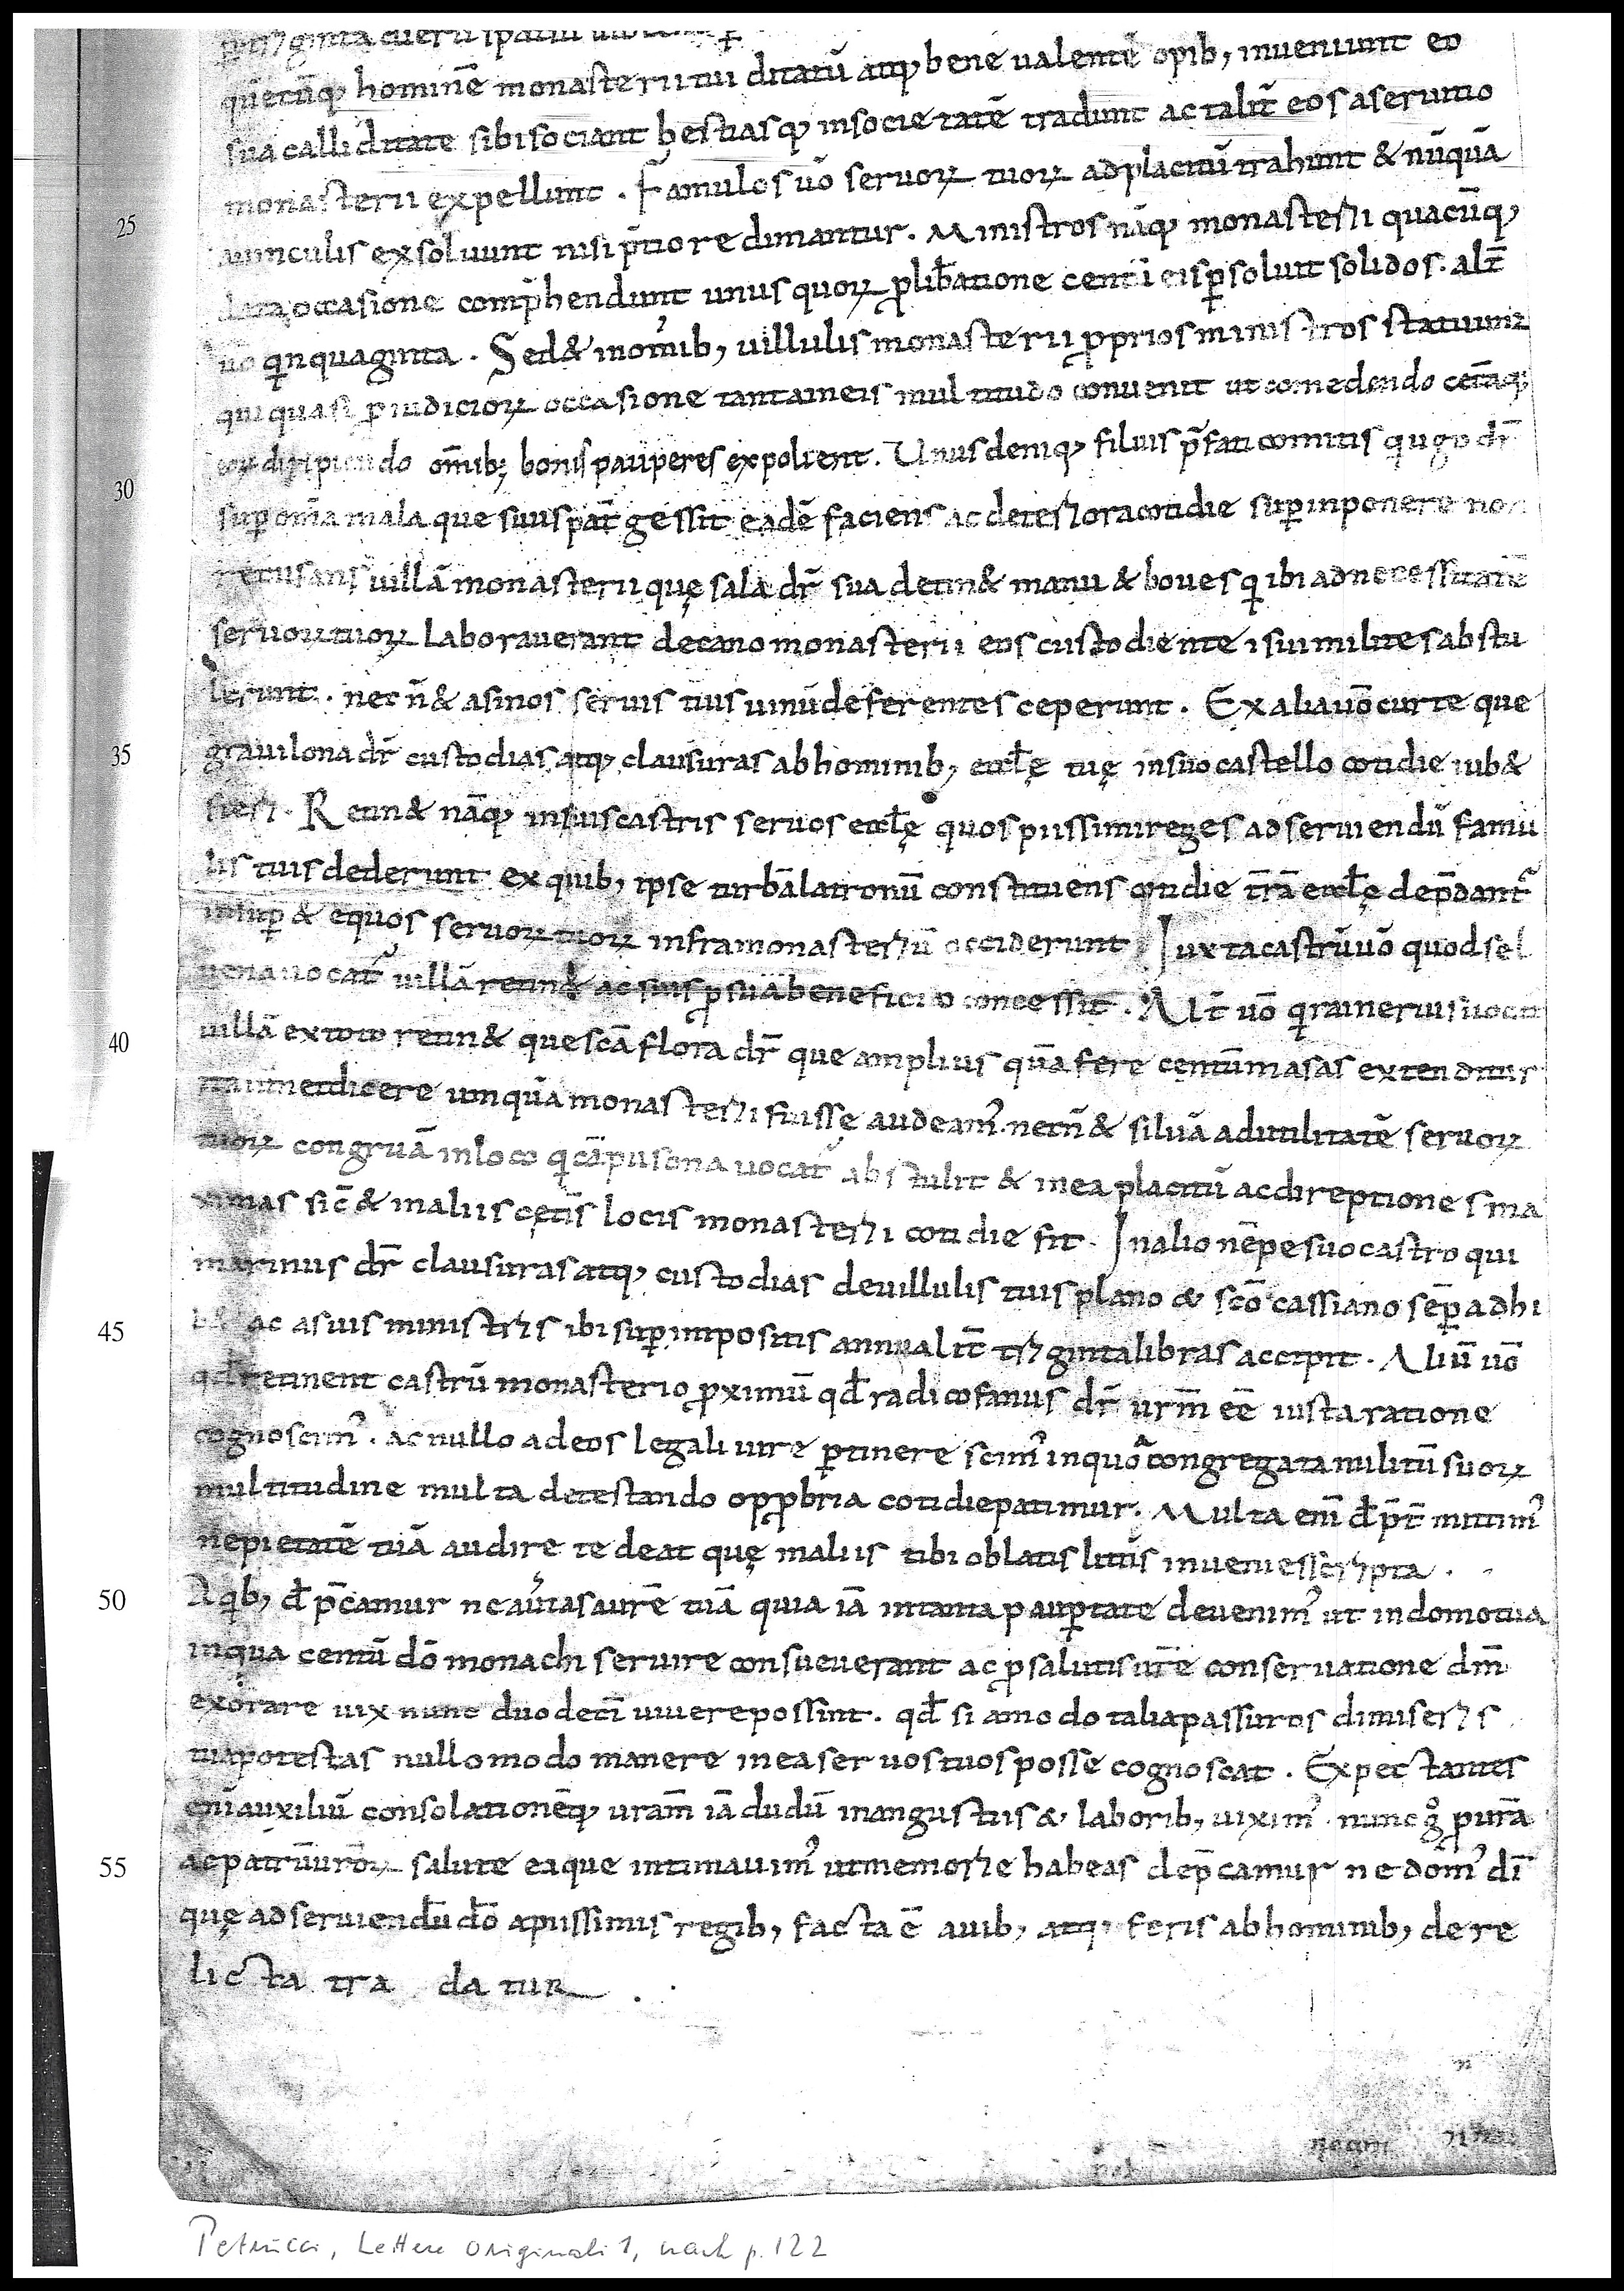 quē cūq; hominē monasterii tui ditatū atq; bene ualentē opib; inueniunt eo
sua calliditate sibi sociant bestiasq; in societatē tradunt ac talit̄ eos a seruitio
monasterii expellunt . Famulos u̅o seruoꝝ tuoꝝ ad placitū trahunt & nūquā
25
a uinculis exsoluunt nisi p̄tio redimantur . Ministros nāq; monasterii quacūq;
occasione comp̄hendunt unus quoꝝ ꝓ lib̄atione centū eis ꝑsoluit solidos . alt̄
u̅o qinquaginta . Sed & in om̄ib; uillulis monasterii ꝓprios ministros statuunt
qui quasi ꝓ iudicioꝝ occasione tanta in eis multitudo conuenit ut comedendo cet̄aq;
eoꝝ diripiendo om̄ib; bonis pauperes expolient . Unus deniq; filius p̄fati comitis qi ugo dr̄
30
suꝑ om̄a mala que suus pat̄ gessit eadē faciens ac deteriora cotidie suꝑinponere non
recusans uillā monasterii quę sala dr̄ sua detin& manu & boues qi ibi ad necessitatē
seruoꝝ tuoꝝ laborauerant decano monasterii eos custodiente isui milites abstu
lerunt . nec n̄ & asinos seruis tuis uinū deferentes ceperunt . Ex alia uo̅ curte que
35
grauilona dr̄ custodias atq; clausuras ab hominib; eccl̄ę tuę in suo castello cotidie iub&
fieri . Retin& nāq; in suis castris seruos eccl̄ę quos piissimi reges ad seruiendū famu
lis tuis dederunt ex quib; ipse turbā latronū constituens cotidie t̄rā eccl̄ę dep̄dant̉
insuꝑ & equos seruoꝝ tuoꝝ infra monasteriū occiderunt Iuxta castrū u̅o quod sel
uena uocat̉ uillā retin& ac suis ꝓ sua beneficio concessit . Alt̄ uo̅ qi rainerius uocat̉
40
uillā ex toto retin& que sc̄a flora dr̄ que amplius quā fere centū masas extenditur
dicere umquā monasterii fuisse audeam̉ . nec n̄ & siluā ad utilitatē seruoꝝ
tuoꝝ congruā in loco qi cāpusona uocat̉ abstulit & in ea placitū ac direptiones ma
ximas sic̄ & in aliis cęt̄is locis monasterii cotidie fit . In alio nēpe suo castro qui
marinus dr̄ clausuras atq; custodias de uillulis tuis plano & sc̄o cassiano sēꝑ adhi
45
b& ac a suis ministris ibi suꝑimpositis annualit̄ triginta libras accipit . Aliū uo̅
qd̄ retinent castrū monasterio ꝓximū qd̄ radicofanus dr̄ ur̄m ee̅ iusta ratione
cognoscim̉ . ac nullo ad eos legali iure ꝑtinere scim̉ in quo congregata militū suoꝝ
multitudine multa detestando opꝓbria cotidie patimur . Multa eni̅ d̄p̄t̄ mittim̉
ne pietatē tuā audire tedeat quę in aliis tibi oblatis litt̄is inuenies scripta .
50
A qib; d̄p̄camur ne au̇tas aurē tuā quia iā in tanta pauꝑtate deuenim̉ ut in domo tua
in qua centū do̅ monachi seruire consueuerant ac ꝓ salutis ur̄e conseruatione dm̄
exorare uix nunc duodeci̅ uiuere possint . qd̄ si amodo talia passuros dimiseris
tua potestas nullo modo manere in ea seruos tuos posse cognoscat . Expectantes
eni̅ auxiliū consolationēq; ur̄am iā dudū in angustiis & laborib; uixim̉ nunc gͦ ꝓ ur̄a
55
ac patrū ur̄oꝝ salute ea que intimauim̉ ut memorie habeas dep̄camur ne dom̉ di̅
quę ad seruiendū do̅ a piissimis regib; facta e̅ auib; atq; feris ab hominib; dere
licta tra da tur .
n
Petrucci, Lettere originali 1, nach p. 122